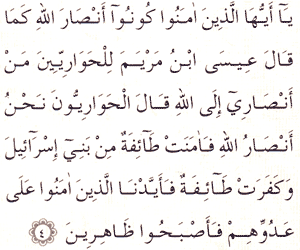 يَآ أَيُّهَا الَّذِينَ اٰمَنُوا كُونُوٓا أَنْصَارَ اللهِ كَمَا
قَالَ عِيسَى ابْنُ مَرْيَمَ لِلْحَوَارِيّٖينَ مَنْ
أَنْصَارِيٓ إِلَى اللهِ قَالَ الْحَوَارِيُّونَ نَحْنُ
أَنْصَارُ اللهِ فَاٰمَنَتْ طَآئِفَةٌ مِنْ بَنِيٓ إِسْرَآئِيلَ
وَكَفَرَتْ طَآئِفَةٌ فَأَيَّدْنَا الَّذِينَ اٰمَنُوا عَلَى
عَدُوِّهِمْ فَأَصْبَحُوا ظَاهِرِينَ ٤